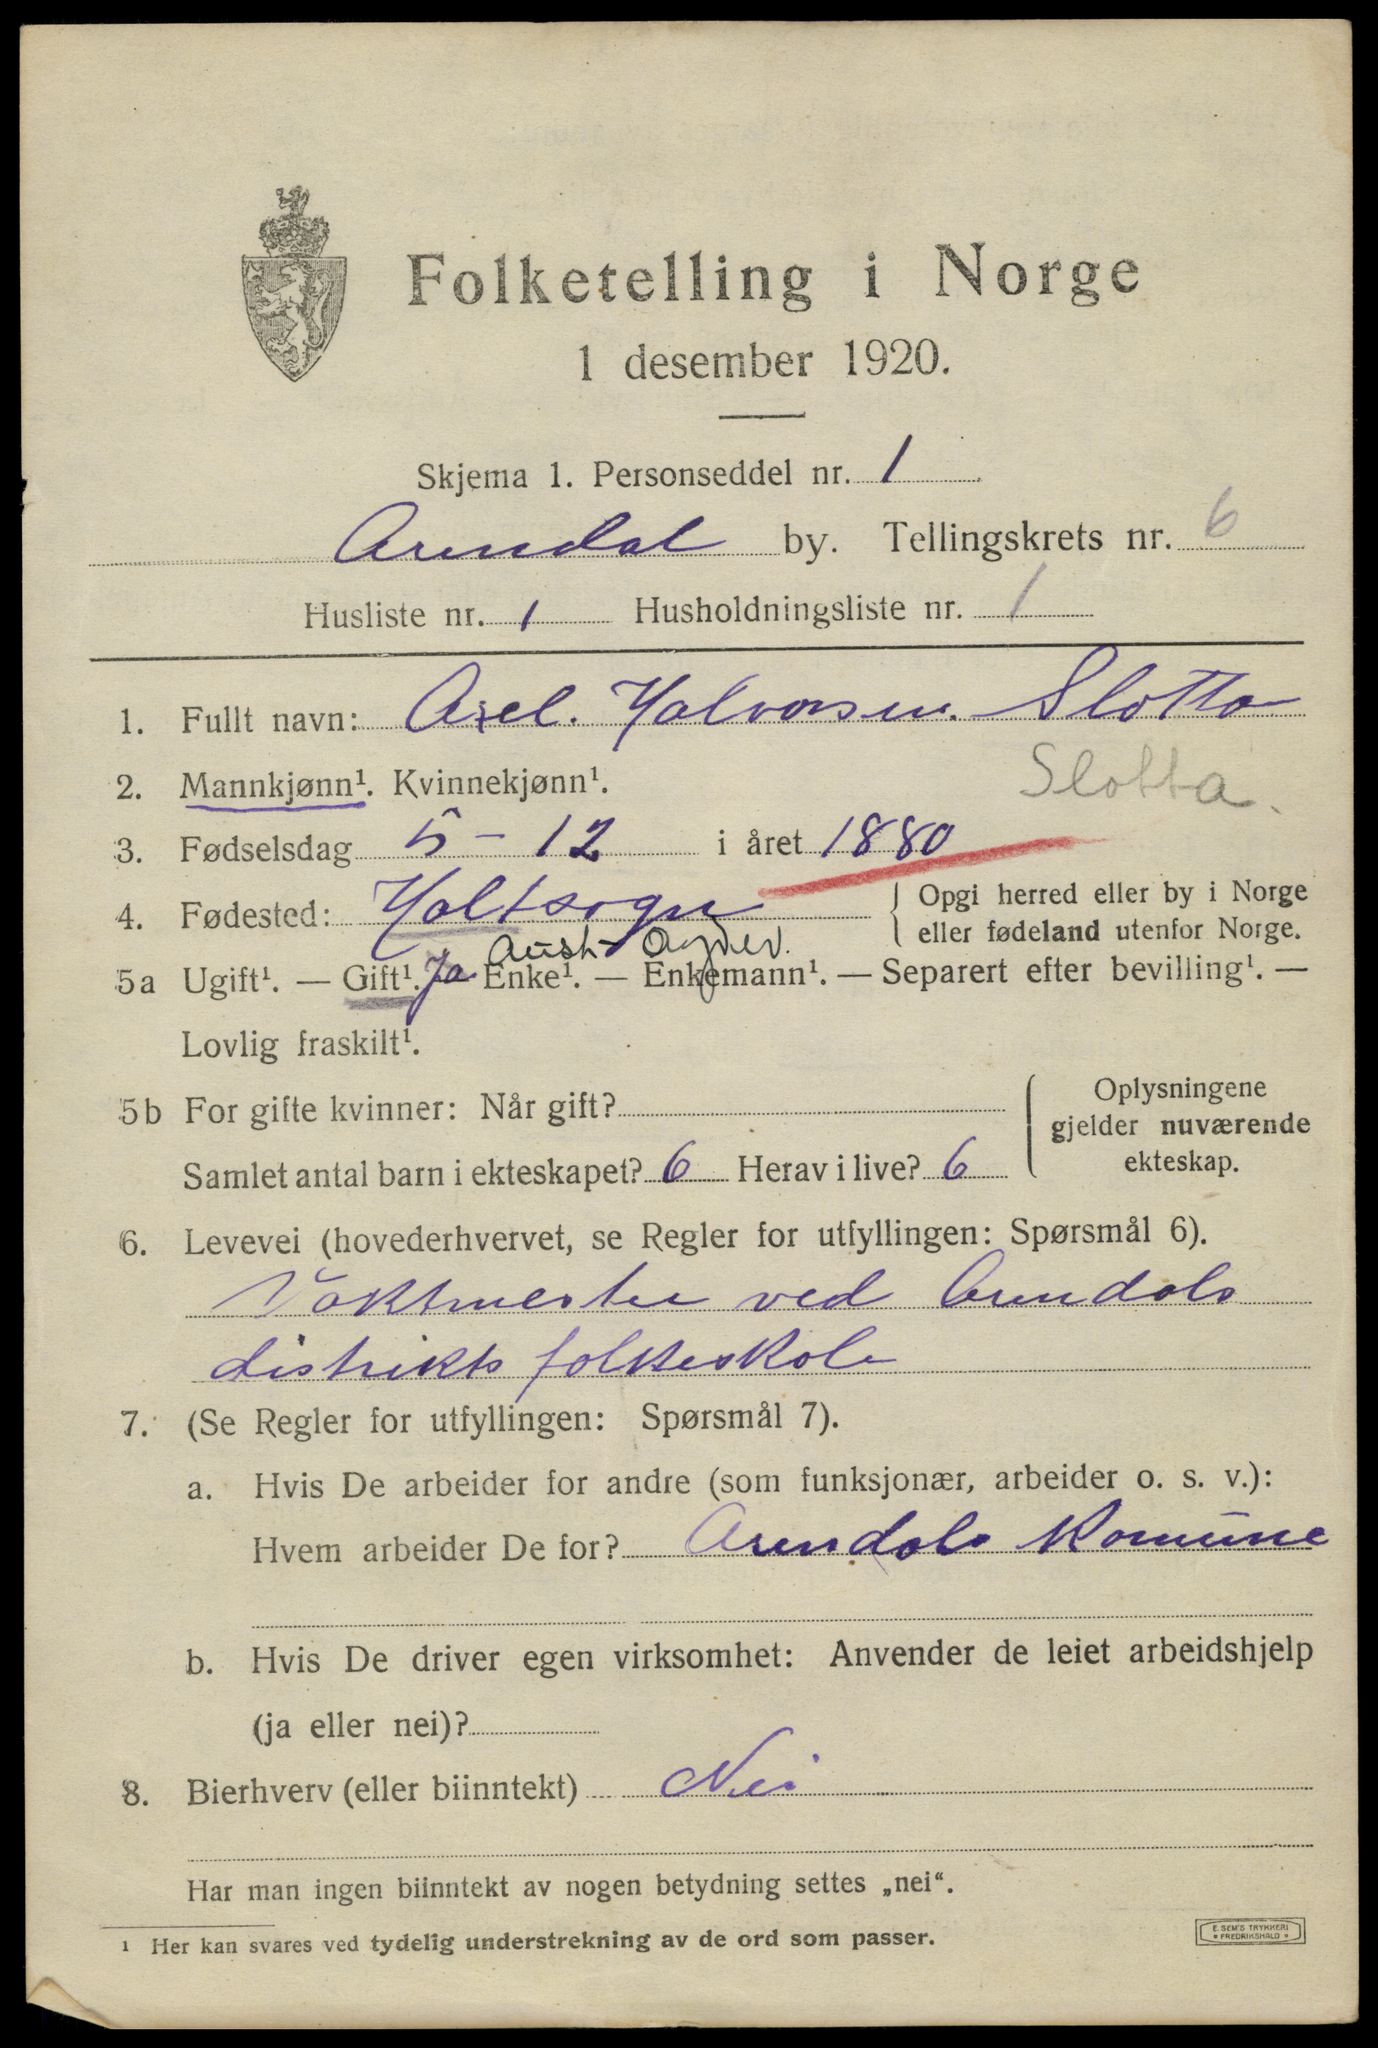 Folketelling i Norge
1 desember 1920.
Skjema 1. Personseddel nr. 1
Arendal by. Tellingskrets nr. 6
Husliste nr. 1 Husholdningsliste nr. 1
1. Fullt navn: Axel. Halvorsen. Slotta
Slotta.
2. Mannkjønn¹. Kvinnekjønn¹.
3. Fødselsdag 5 - 12 i året 1880
4. Fødested: Holtsogn { Opgi herred eller by i Norge
eller fødeland utenfor Norge.
Aust-Agder.
5a Ugift¹. — Gift¹. Ja Enke¹. — Enkemann¹. — Separert efter bevilling¹. —
Lovlig fraskilt¹.
5b For gifte kvinner: Når gift?
Samlet antal barn i ekteskapet? 6 Herav i live? 6
{ Oplysningene
gjelder nuværende
ekteskap.
6. Levevei (hovederhvervet, se Regler for utfyllingen: Spørsmål 6).
Vaktmester ved Arendals
distrikts folkeskole
7. (Se Regler for utfyllingen: Spørsmål 7).
a. Hvis De arbeider for andre (som funksjonær, arbeider o. s. v.):
Hvem arbeider De for? Arendals Komune
b. Hvis De driver egen virksomhet: Anvender de leiet arbeidshjelp
(ja eller nei)?
8. Bierhverv (eller biinntekt) Nei
Har man ingen biinntekt av nogen betydning settes „nei“.
¹ Her kan svares ved tydelig understrekning av de ord som passer.
E. SEM'S TRYKKERI
* FREDRIKSHALD *